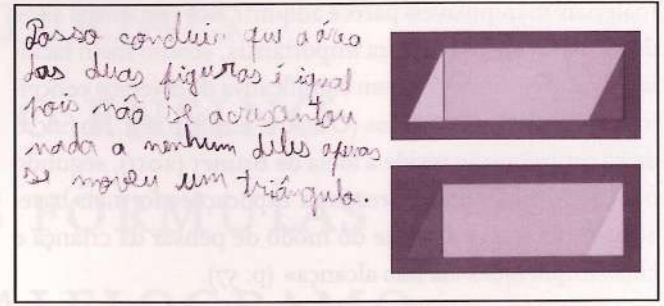 Posso concluir que a area
das duas figuras é igual
pois não se acrescantou
nada a nenhum deles apenas
se moveu um triângulo.